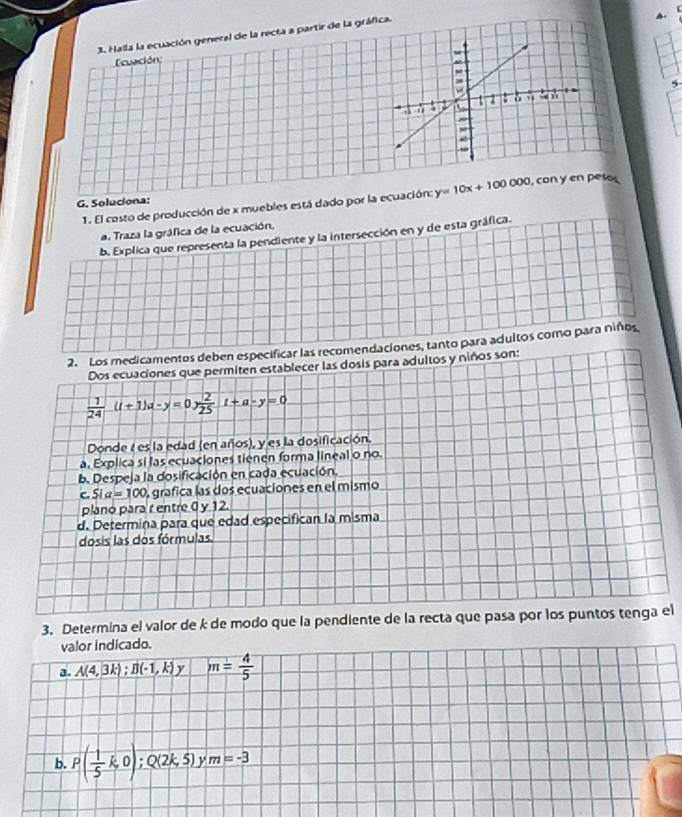 3. Halla la ecuación general de la recta a partir de la gráfica.
Ecuación:
G. Soluciona:
1. El costo de producción de x muebles está dado por la ecuación: y= 10x + 100 000, con y en pesos
a. Traza la gráfica de la ecuación.
b. Explica que representa la pendiente y la intersección en y de esta gráfica.
2. Los medicamentos deben especificar las recomendaciones, tanto para adultos como para niños.
Dos ecuaciones que permiten establecer las dosis para adultos y niños son:
1/24 (t + 1)a - y = 0 y 2/25 t + a - y = 0
Donde t es la edad (en años), y es la dosificación.
a. Explica si las ecuaciones tienen forma lineal o no.
b. Despeja la dosificación en cada ecuación.
c. Si a = 100, grafica las dos ecuaciones en el mismo
plano para t entre 0 y 12.
d. Determina para que edad especifican la misma
dosis las dos fórmulas.
3. Determina el valor de k de modo que la pendiente de la recta que pasa por los puntos tenga el
valor indicado.
a. A(4, 3k) ; B(-1, k) y m = 4/5
b. P(1/5 k, 0) ; Q(2k, 5) y m = -3